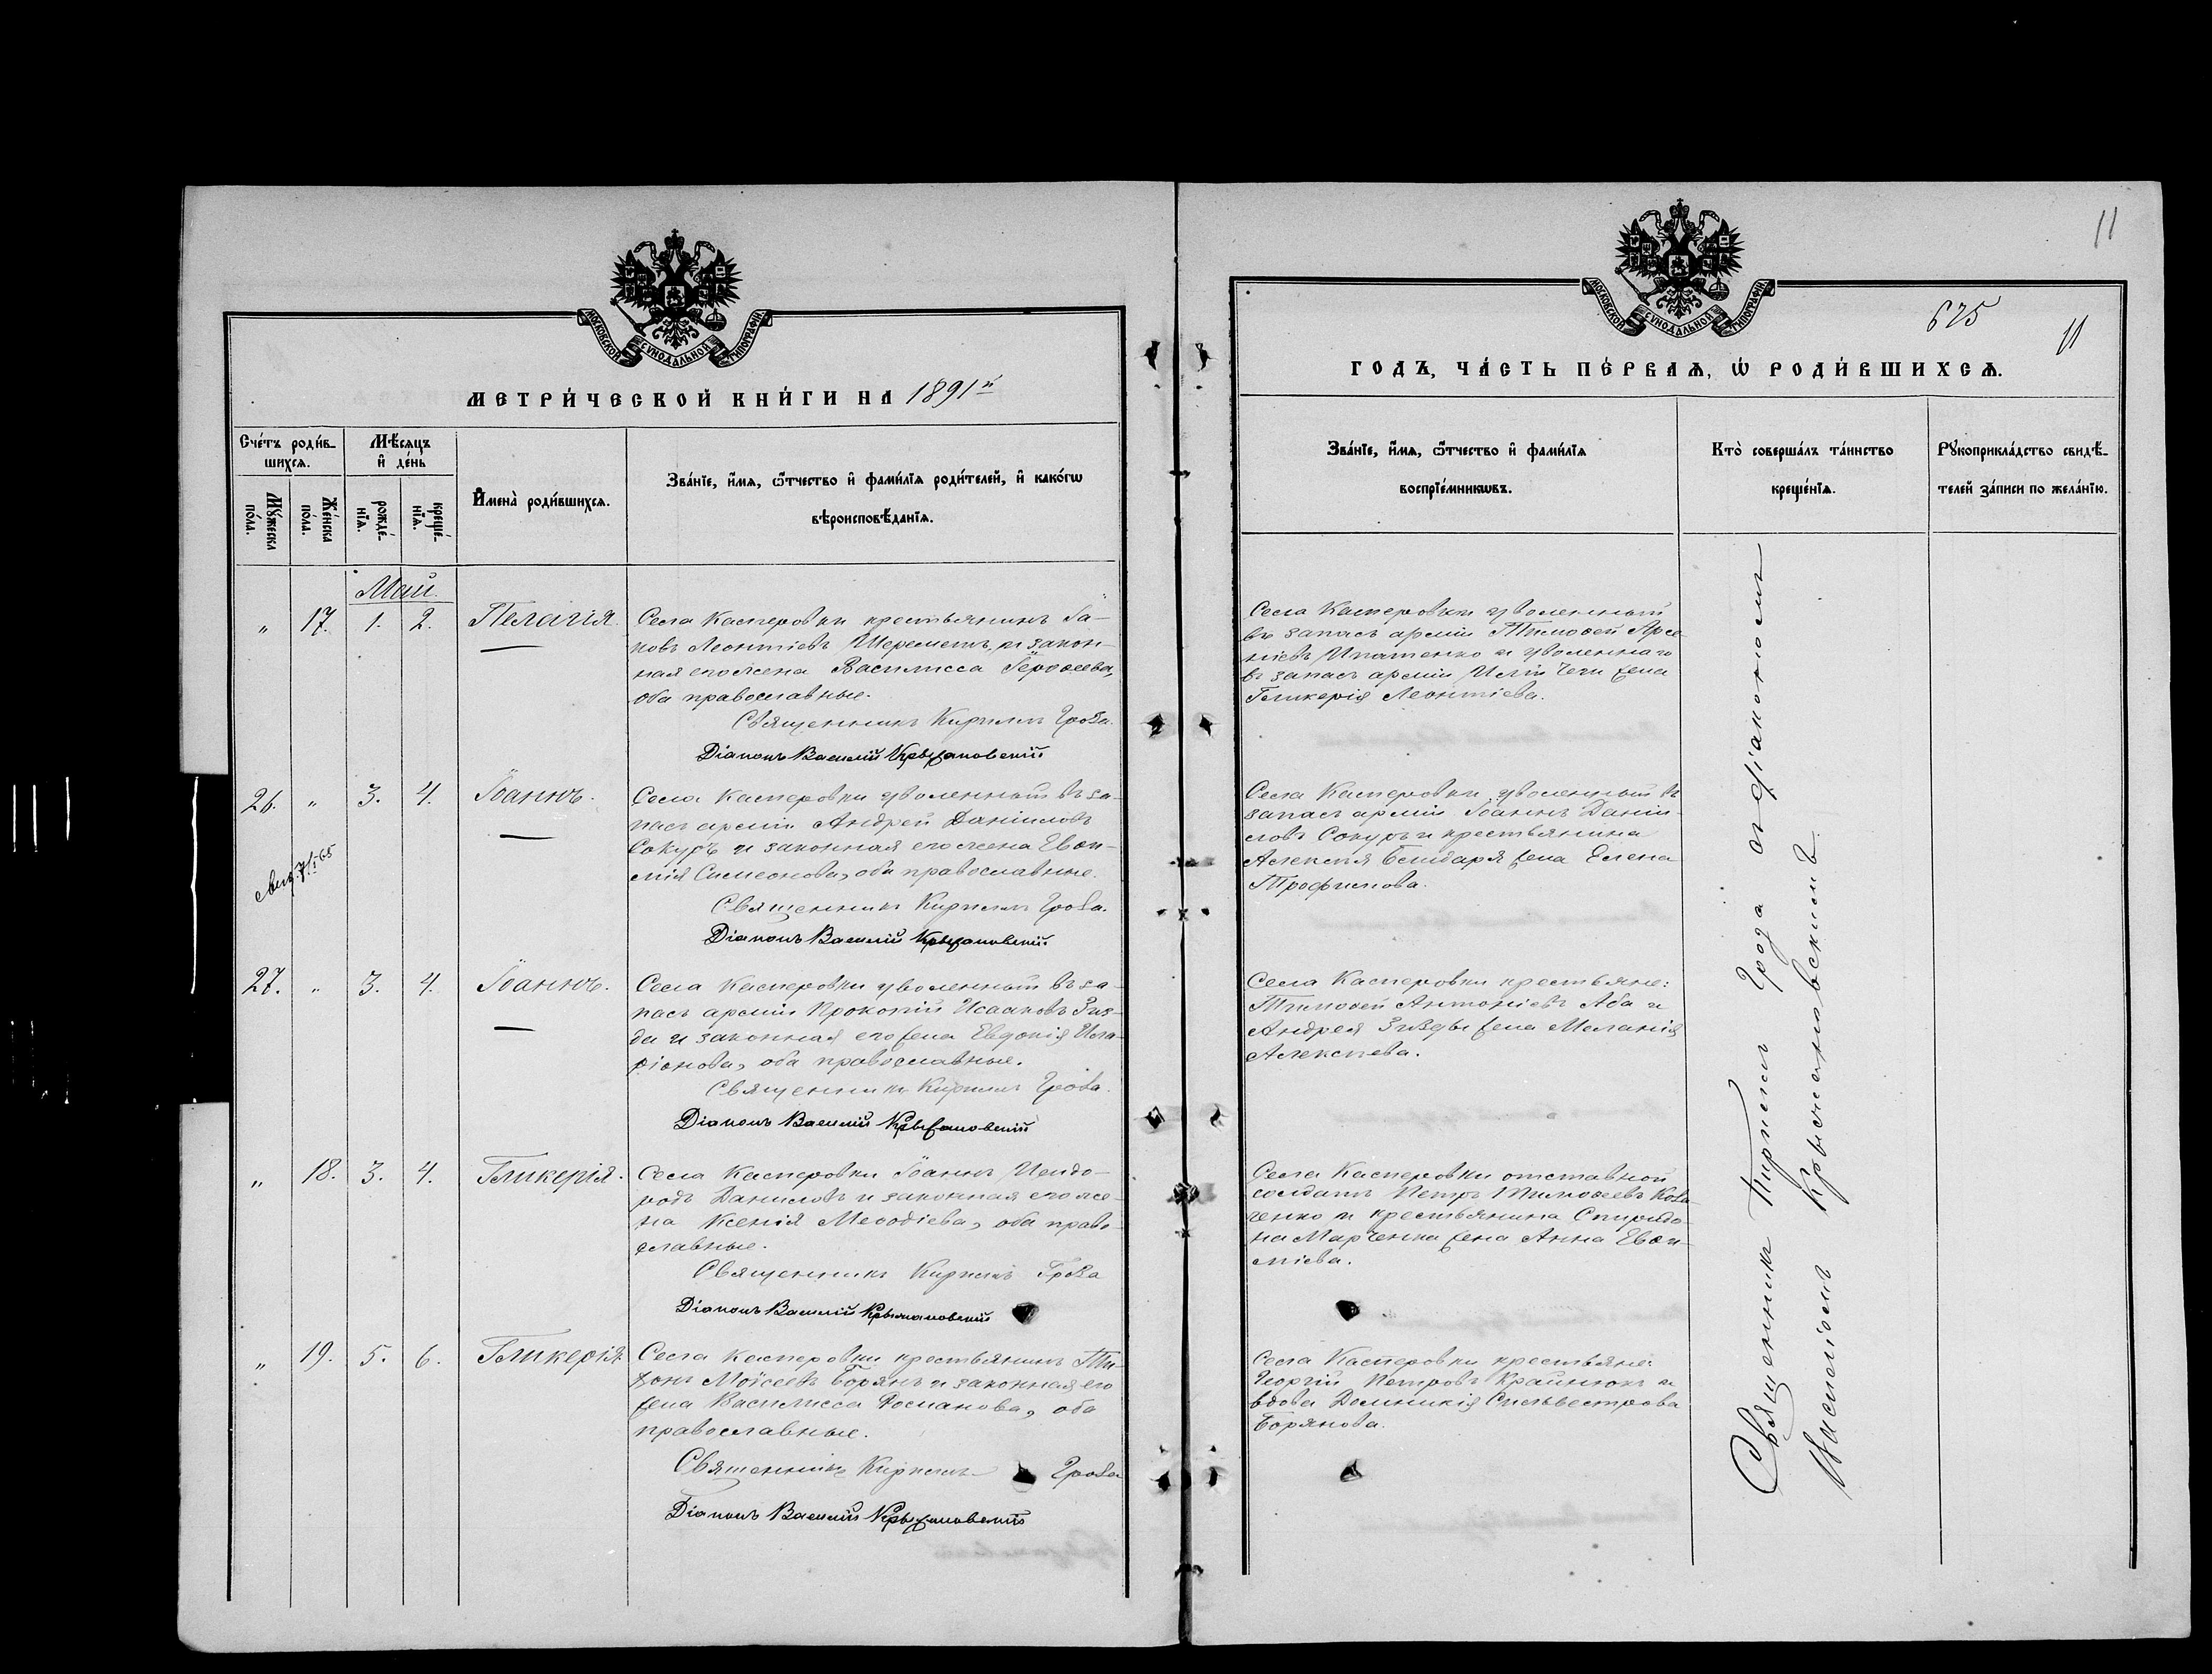 11
МОСКОВСКОЙ СѴНОДАЛЬНОЙ ТИПОГРАФІИ
МЕТРИ́ЧЕСКОЙ КНИ́ГИ НА 1891й
Сче́тъ роди́в-
шихся.
Мѣ́сяцъ
и҆ де́нь
Мꙋ́жеска
по́ла.
Же́нска
по́ла.
рожде́-
нїѧ.
креще́-
нїѧ.
И҆мена̀ роди́вшихсѧ.
Зва́нїе, и҆́мѧ, ѻ҆́тчество и҆ фами́лїѧ роди́телей, и҆ како́гѡ
вѣроисповѣ́данїѧ.
Май.
„ 17. 1. 2. Пелагія.
Села Касперовки крестьянинъ Іа-
ковъ Леонтіевъ Шереметъ, и закон-
ная его жена Василисса Іероѳеева,
оба православные.
Священникъ Кириллъ Грова.
Діаконъ Василій Крыжановскій
26. „ 3. 4. Іоаннъ.
Села Касперовки уволенный въ за-
пасъ арміи Андрей Даніиловъ
Сокуръ и законная его жена Евѳи-
мія Симеонова, оба православные.
Священникъ Кириллъ Грова.
Діаконъ Василій Крыжановскій
27. „ 3. 4. Іоаннъ.
Села Касперовки уволенный въ за-
пасъ арміи Прокопій Исааковъ Гнѣз-
да и законная его жена Евдокія Ила-
ріонова, оба православные.
Священникъ Кириллъ Грова.
Діаконъ Василій Крыжановскій
„ 18. 3. 4. Гликерія.
Села Касперовки Іоаннъ
Даниловъ и законная его же-
на Ксенія Меѳодіева, оба право-
славные.
Священникъ Кириллъ Грова
Діаконъ Василій Крыжановскій
„ 19. 5. 6. Гликерія
Села Касперовки крестьянинъ Ти-
хонъ Моисеевъ Борянъ и законная его
жена Василисса Романова, оба
православные.
Священникъ Кириллъ Грова
Діаконъ Василій Крыжановскій
МОСКОВСКОЙ СѴНОДАЛЬНОЙ ТИПОГРАФІИ
675
11
ГОДЪ, ЧА́СТЬ ПЕ́РВАѦ, Ѡ҆ РОДИ́ВШИХСѦ.
Зва́нїе, и҆́мѧ, ѻ҆́тчество и҆ фами́лїѧ
воспрїе́мникѡвъ.
Кто̀ соверша́лъ та́инство
креще́нїѧ.
Рꙋкоприкла́дство свидѣ́-
телей за́писи по жела́нїю.
Села Касперовки уволенный
въ запасъ арміи Тимоѳей Арсе
ніевъ Игнатенко и уволеннаго
въ запасъ арміи жена
Гликерія Леонтіева.
Села Касперовки уволенный въ
запасъ арміи Іоаннъ Даніи-
ловъ Сокуръ и крестьянина
Алексія жена Елена
Трофимова.
Села Касперовки крестьяне:
Тимоѳей Антоніевъ Аба и
Андрея Гнѣзды жена Меланія
Алексіева.
Села Касперовки отставной
солдатъ Петръ Тимоѳеевъ Кова
ченко и крестьянина Спиридо-
на Марченка жена Анна Евѳи-
міева.
Села Касперовки крестьяне:
Георгій Петровъ Крайнюкъ и
вдова Домникія Сильвестрова
Борянова.
Священникъ Кириллъ Грова съ діакономъ
Василіемъ Крыжановскимъ